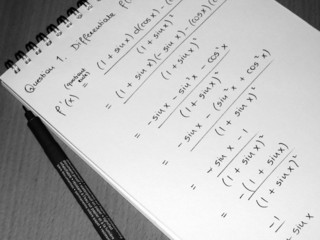 Question 1. Differentiate f(
f'(x) = (quotient rule) (1 + sin x) d(cos x) - (
(1 + sin x)²
= (1 + sin x)(- sin x) - (cos x)(
(1 + sin x)²
= - sin x - sin² x - cos² x
(1 + sin x)²
= - sin x - (sin² x + cos² x)
(1 + sin x)²
= - sin x - 1
(1 + sin x)²
= -(1 + sin x)
(1 + sin x)²
= -1
sin x